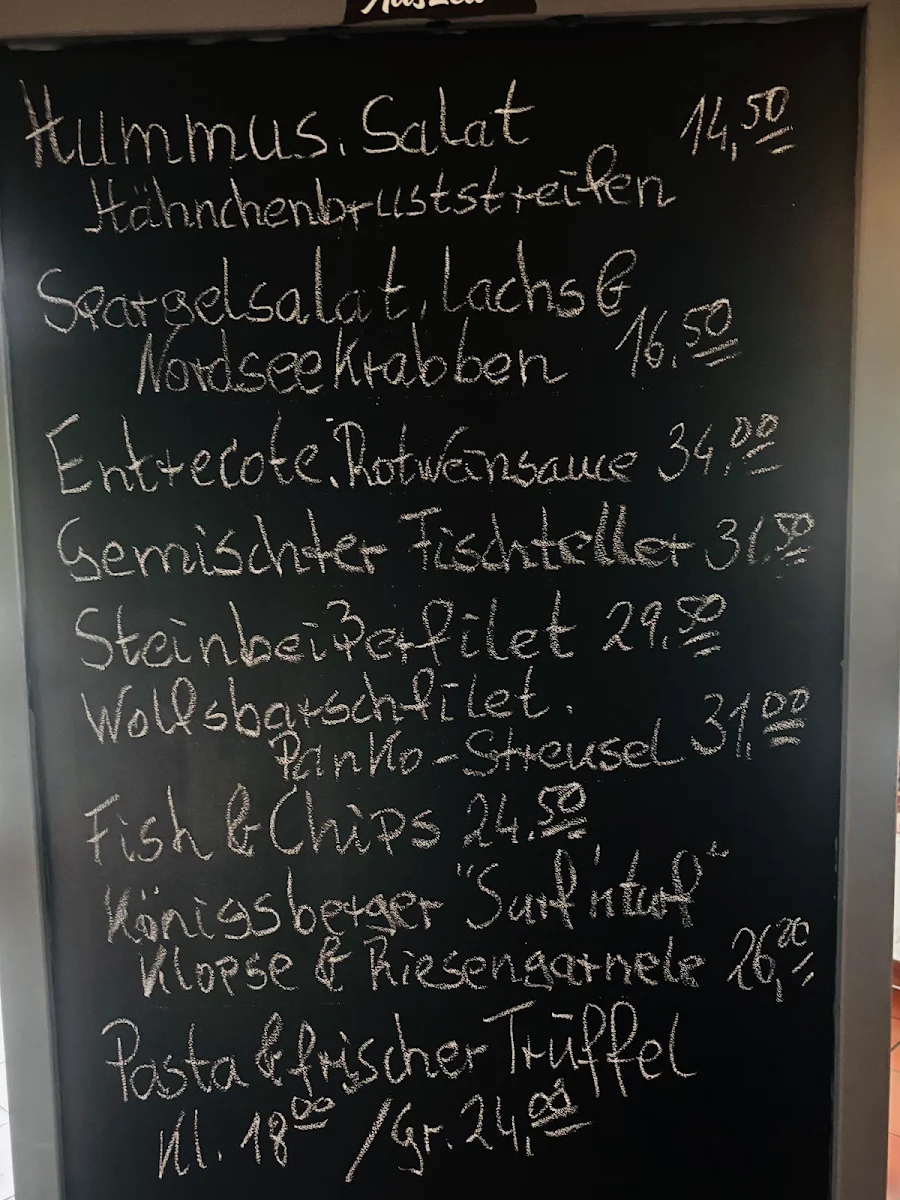 Hummus, Salat 14,50
Hähnchenbruststreifen
Spargelsalat, Lachs &
Nordseekrabben 16.50
Entrecote, Rotweinsauce 34.00
Gemischter Fischteller 31.50
Steinbeißerfilet 29.50
Wolfsbarschfilet,
Panko-Streusel 31,00
Fish & Chips 24.50
Königsberger "Surf'nturf"
Klopse & Riesengarnele 26,00
Pasta & frischer Trüffel
Kl. 18 00 / Gr. 24,00